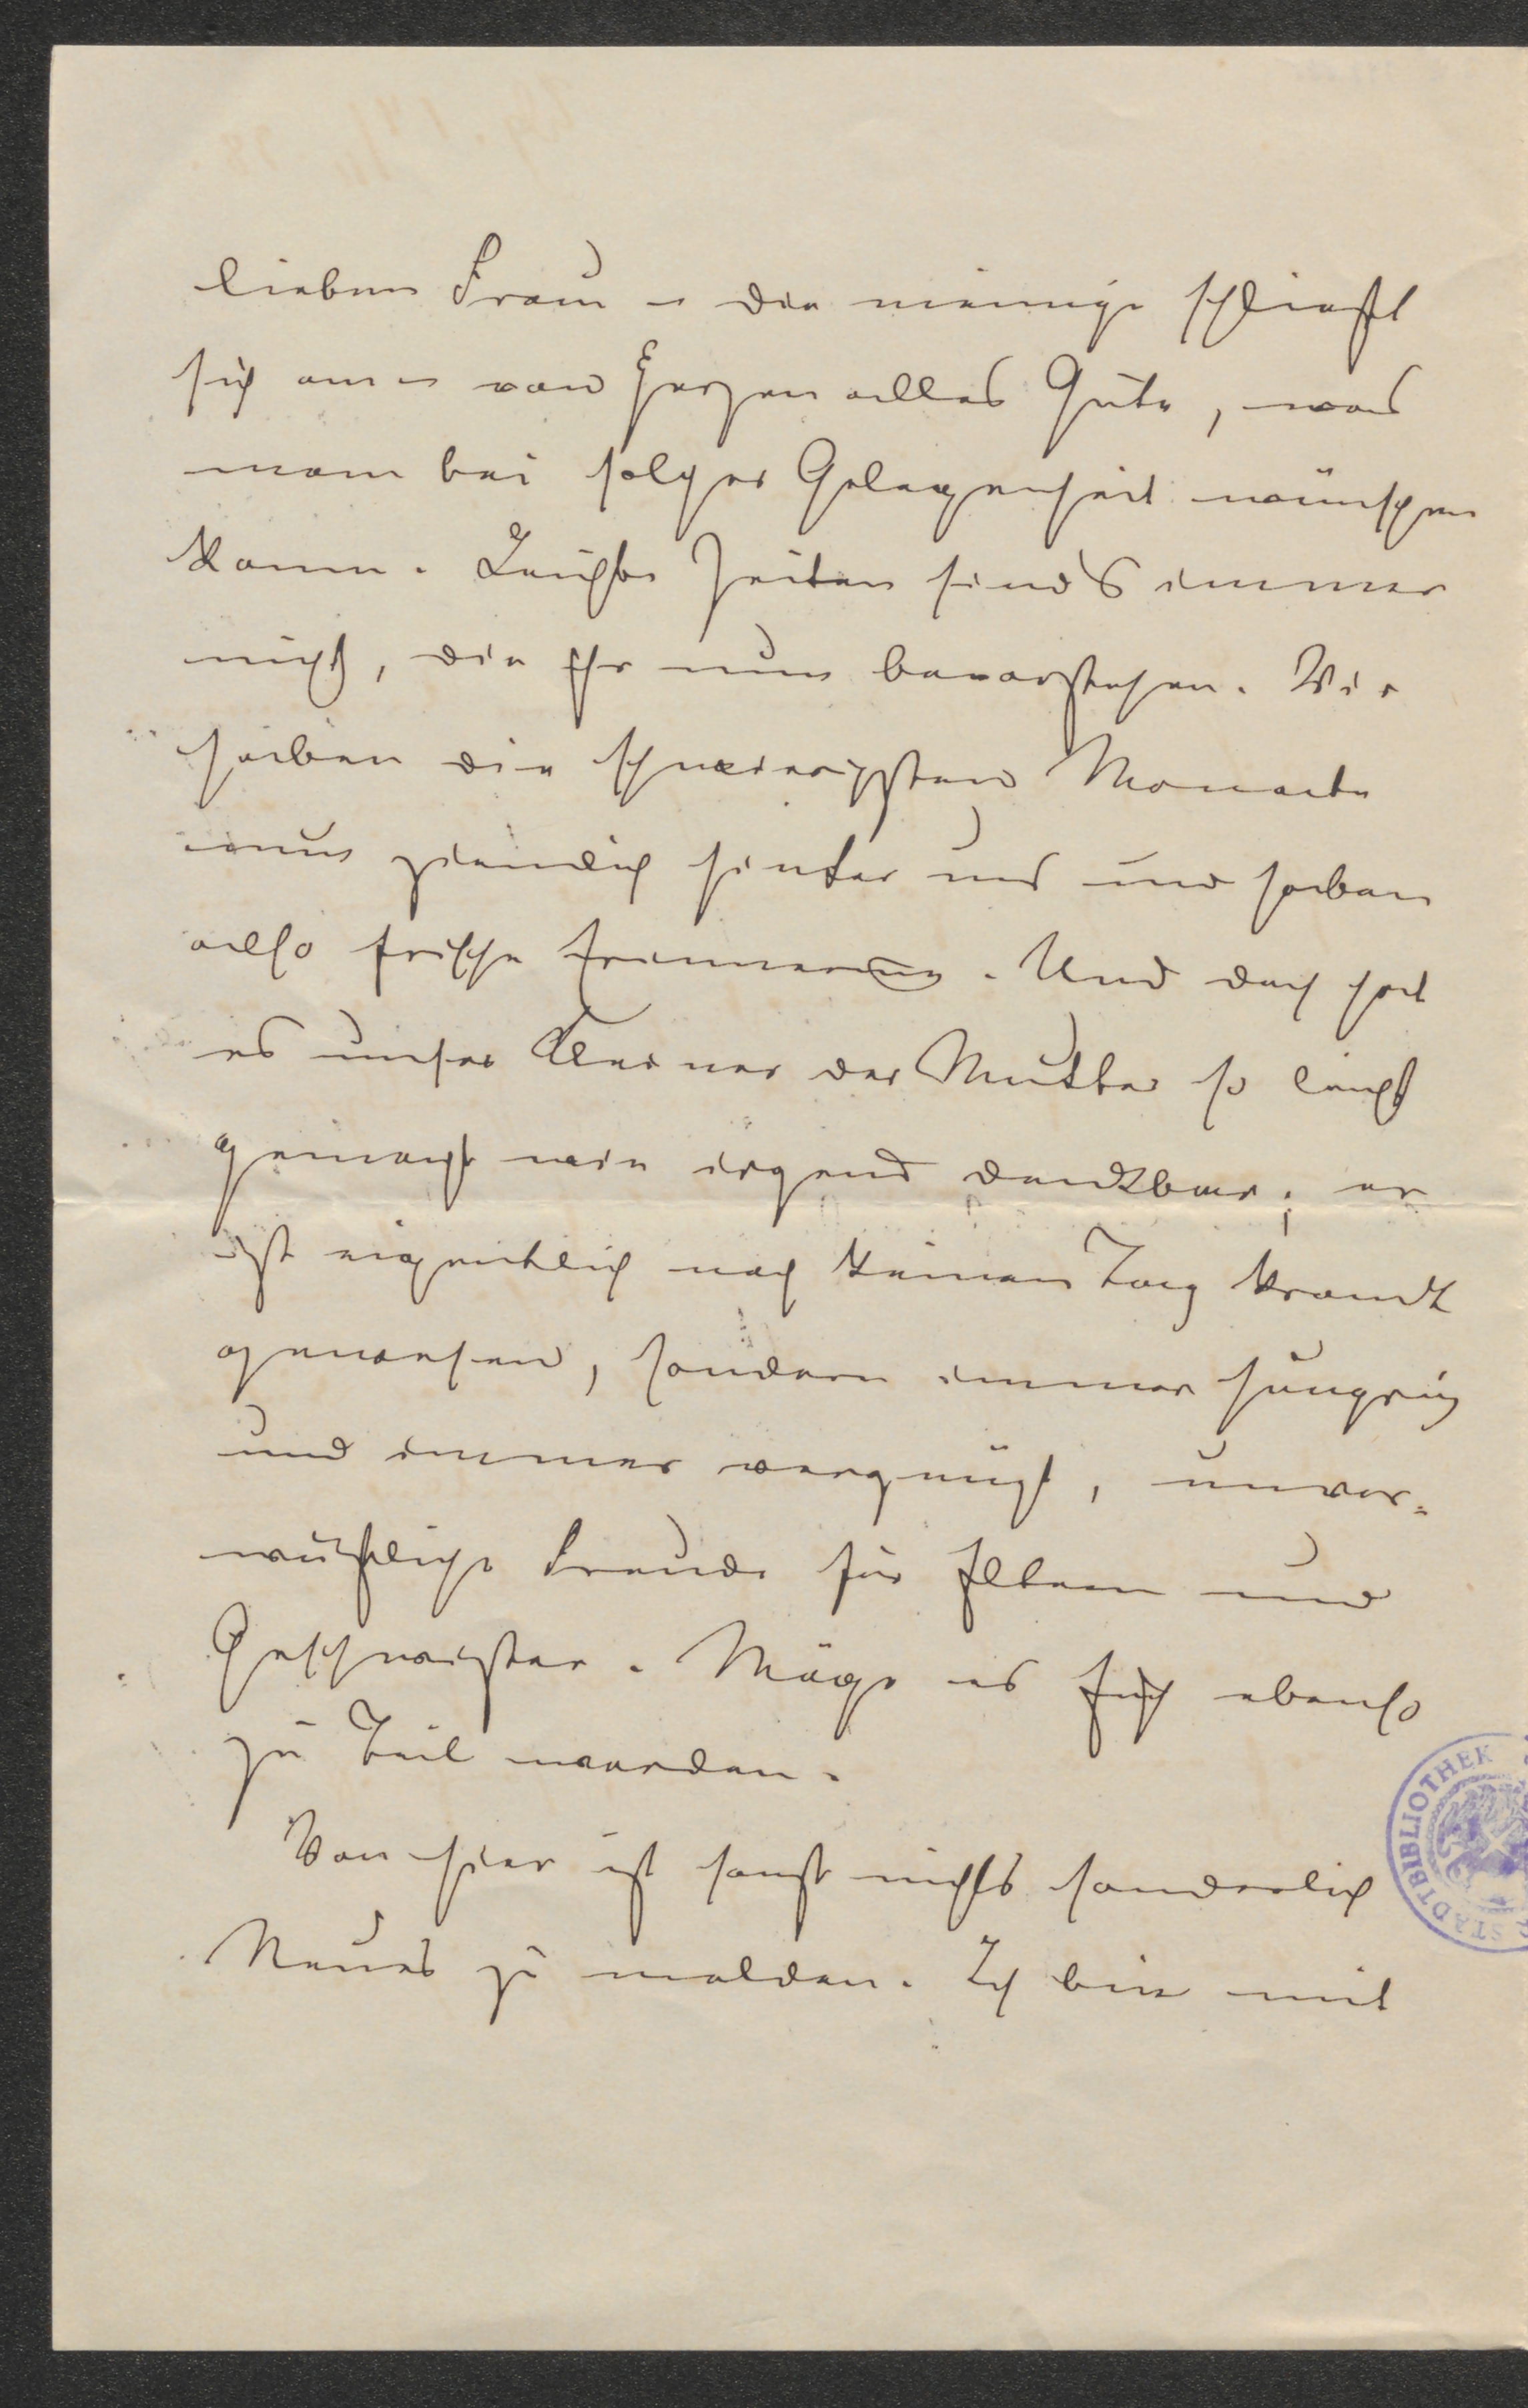 lieben Frau – die meinige schließt
sich an – von Herzen alles Gute, was
man bei solcher Gelegenheit wünschen
kann. Leichte Zeiten sind's immer
nicht, die Ihr nun bevorstehen. Wir
haben die schwierigsten Monate
nun ziemlich hinter uns und haben
also frische Erinnerung. Und doch hat
es unser Kleiner der Mutter so leicht
gemacht wie irgend denkbar; er
ist eigentlich noch keinen Tag krank
gewesen, sondern immer hungrig
und immer vergnügt, unver-
wüstliche Freude für Eltern und
Geschwister. Möge es Euch ebenso
zu Teil werden.
Von hier ist sonst nichts sonderlich
Neues zu melden. Ich bin mit
STADTBIBLIOTHEK